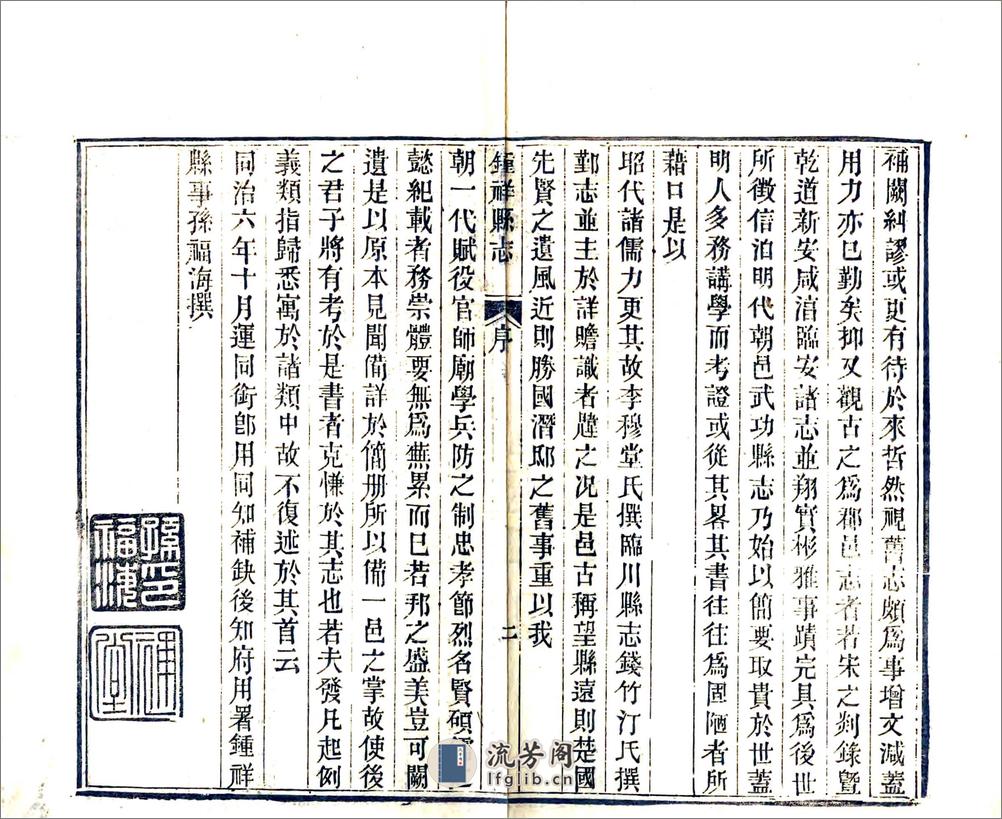 補闕糾謬或更有待於來哲然視舊志頗爲事增文減蓋
用力亦已勤矣抑又觀古之爲郡邑志者若宋之剡錄曁
乾道新安咸淳臨安諸志並翔實彬雅事蹟完具爲後世
所徵信洎明代朝邑武功縣志乃始以簡要取貴於世蓋
明人多務講學而考證或從其畧其書往往爲固陋者所
藉口是以
昭代諸儒力更其故李穆堂氏撰臨川縣志錢竹汀氏撰
鄞志並主於詳贍識者韙之况是邑古稱望縣遠則楚國
先賢之遺風近則勝國潛邸之舊事重以我
鍾祥縣志 序 二
朝一代賦役官師廟學兵防之制忠孝節烈名賢碩
懿紀載者務崇體要無爲蕪累而已若邦之盛美豈可闕
遺是以原本見聞備詳於簡册所以備一邑之掌故使後
之君子將有考於是書者克慊於其志也若夫發凡起例
義類指歸悉寓於諸類中故不復述於其首云
同治六年十月運同銜卽用同知補缺後知府用署鍾祥
縣事孫福海撰
孫福海印
流芳阁
lfglib.cn